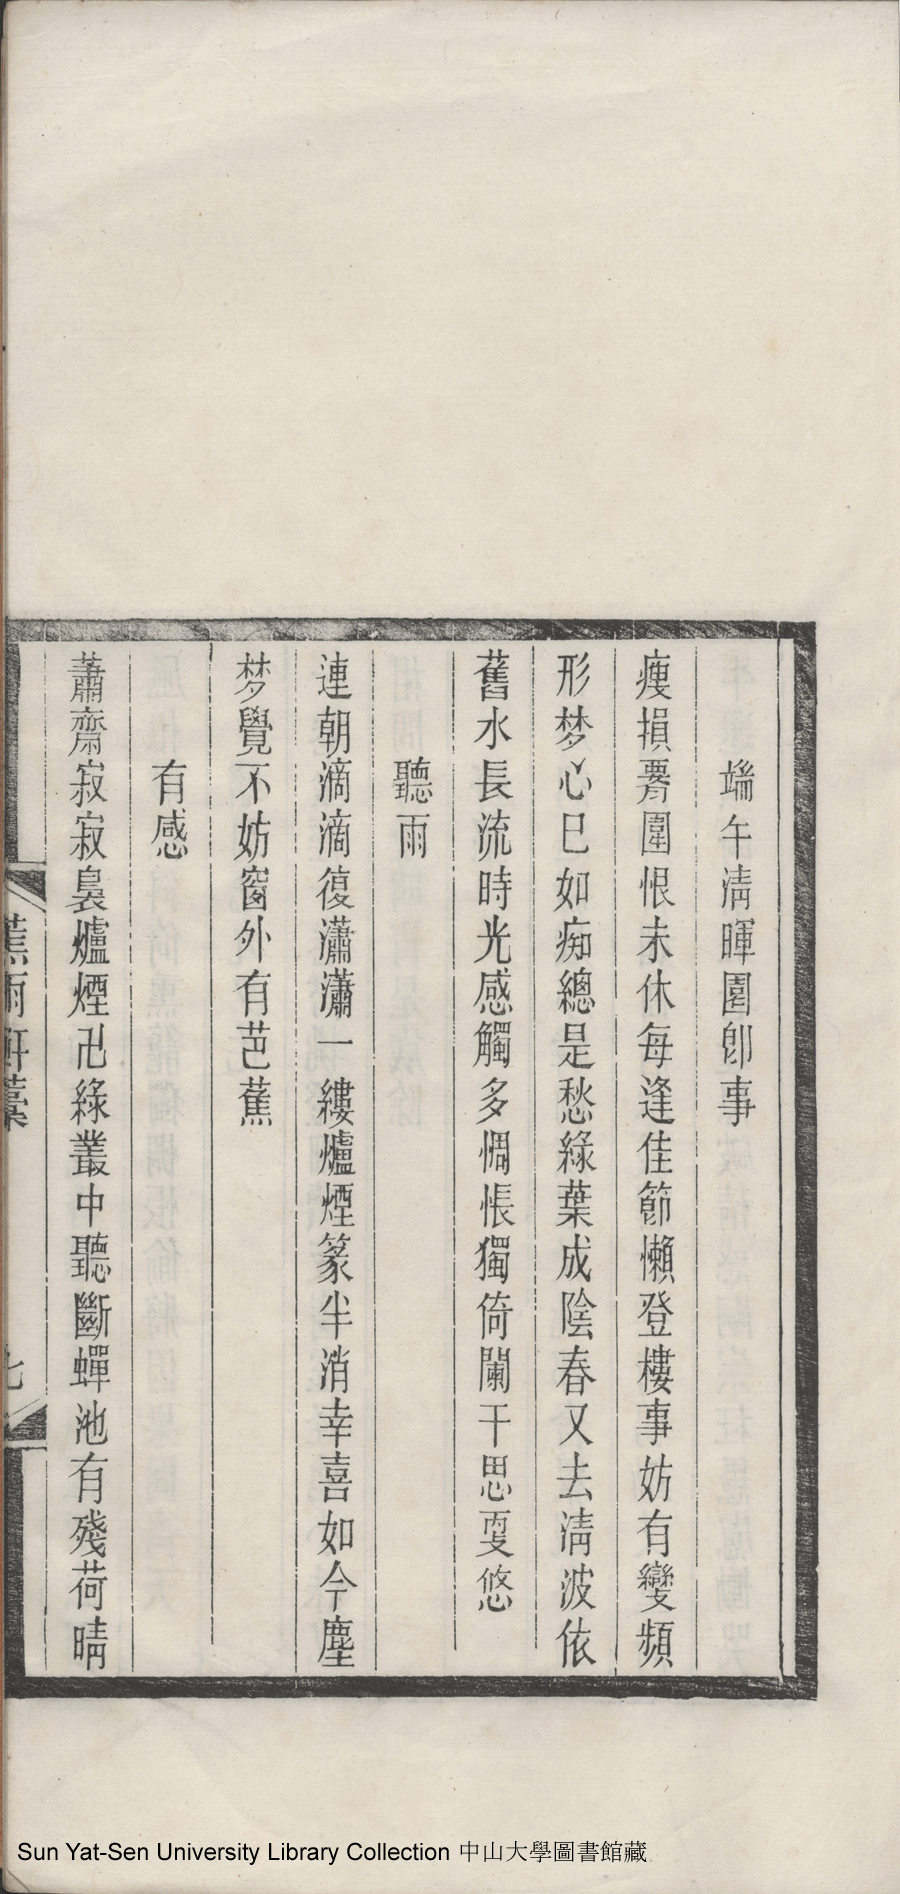 端午清暉園卽事
瘦損腰圍恨未休每逢佳節懶登樓事妨有變頻
形梦心已如痴總是愁綠葉成陰春又去清波依
舊水長流時光感觸多惆悵獨倚闌干思更悠
聽雨
連朝滴滴復瀟瀟一縷爐煙篆半消幸喜如今塵
梦覺不妨窗外有芭蕉
有感
蕭齋寂寂裊爐煙卍綠叢中聽斷蟬池有殘荷晴
蕉雨軒藁
七
Sun Yat-Sen University Library Collection 中山大學圖書館藏